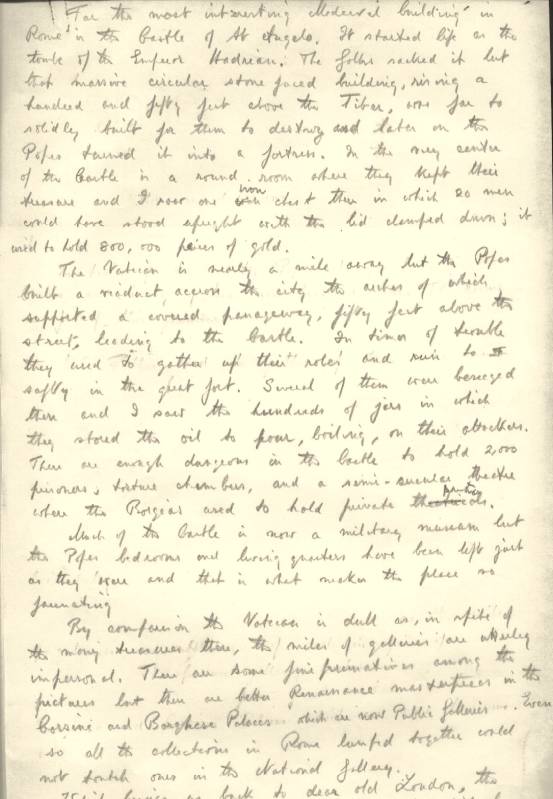 Far the most interesting Medieval building in
Rome is the Castle of St Angelo. It started life as the
tomb of the Emperor Hadrian. The Goths sacked it but
that massive circular stone faced building, rising a
hundred and fifty feet above the Tiber, was far to
solidly built for them to destroy and later on the
Popes turned it into a fortress. In the very centre
of the Castle is a round room where they kept their
treasure and I saw one iron chest there in which 20 men
could have stood upright with the lid clamped down; it
used to hold 800,000 peices of gold.
The Vatican is nearly a mile away but the Popes
built a viaduct across the city the arches of which
supported a covered passageway, fifty feet above the
street, leading to the Castle. In times of trouble
they used to gather up their robes and run to
safty in the great fort. Several of them were besieged
there and I saw the hundreds of jars in which
they stored the oil to pour, boiling, on their attackers.
There are enough dungeons in the castle to hold 2,000
prisoners, torture chambers, and a semi-circular theatre
where the Borgias used to hold private
Much of the Castle is now a military museum but
the Popes bedrooms and living quarters have been left just
as they were and that is what makes the place so
fascinating
By comparison the Vatican is dull as, in spite of
the many treasures there, the miles of galleries are utterley
impersonal. There are some fine primatives among the
pictures but there are better Renaissance masterpieces in the
Corsini and Borghese Palaces which are now Public Galleries. Even
so all the collections in Rome lumped together could
not touch ones in the National Gallery.
back to dear old London, the